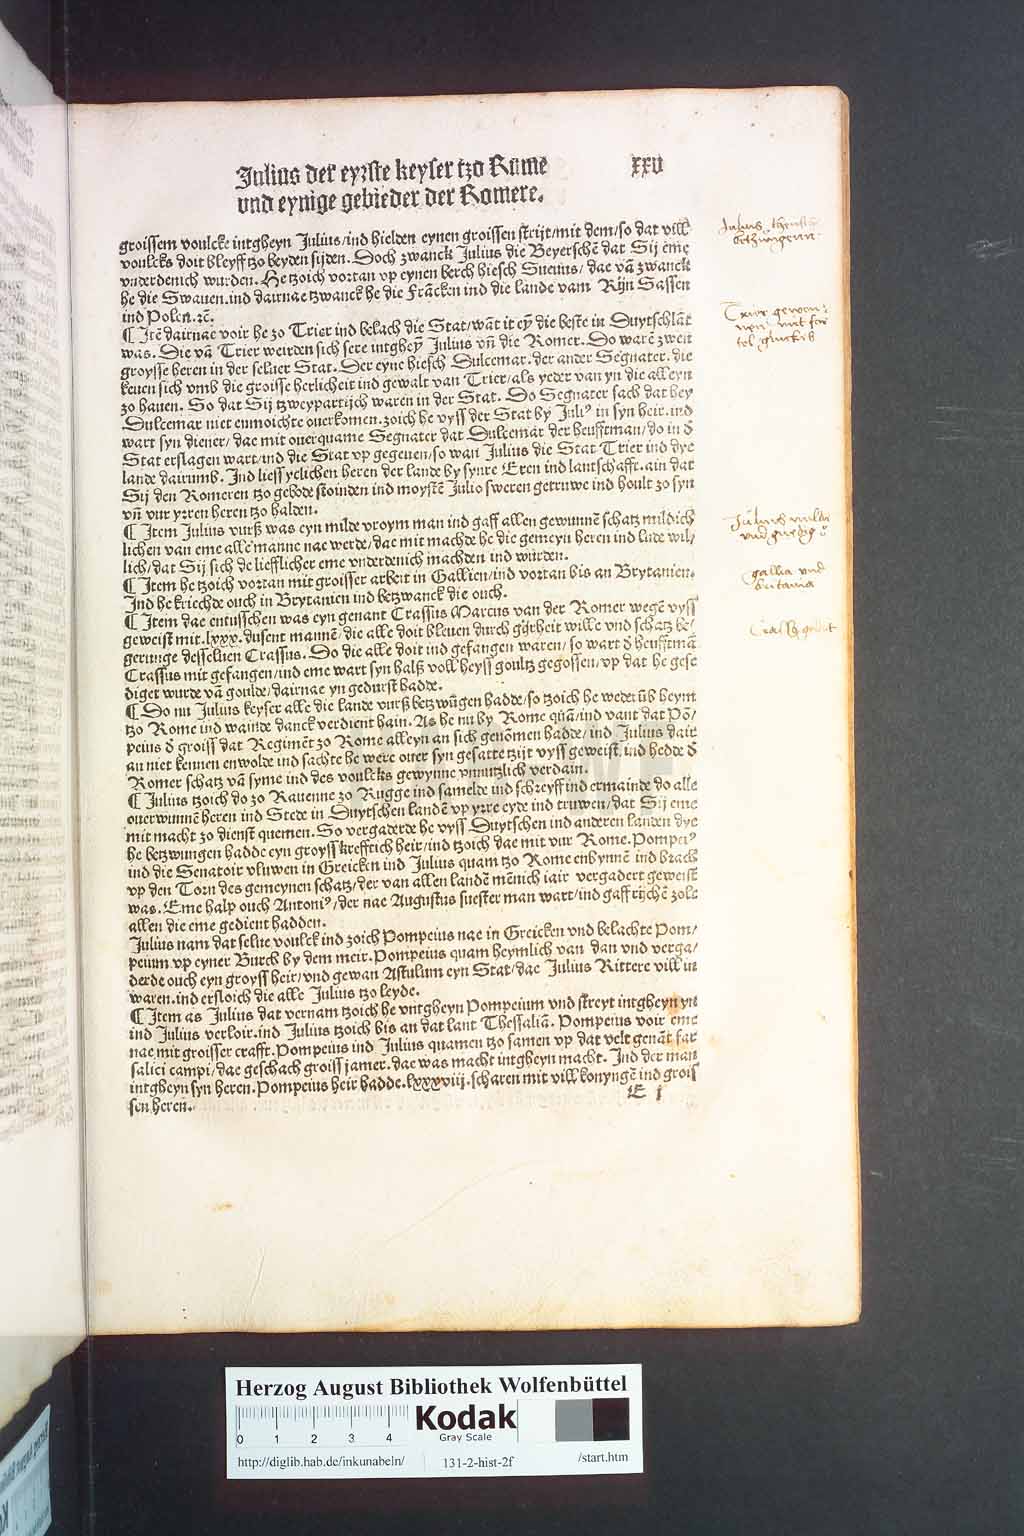 Julius der eyrste keyser tzo Rume
xxv
und eynige gebieder der Romere.
groissem voulcke intgheyn Julius/ind hielden eynen groissen strijt/mit dem/so dat vill
voulcks doit bleyff tzo beyden sijden. Doch zwanck Julius die Beyerschē dat Sij eme
vnderdenich wurden. He tzoich vortan vp eynen berch hiesch Sueuus/dae vā zwanck
he die Swauen.ind dairnae tzwanck he die Frācken ind die lande vam Rijn Sassen
ind Polen.ꝛč.
¶ Jtē dairnae voir he zo Trier ind belach die Stat/wāt it eȳ die beste in Duytschlāt
was. Die vā Trier weirden sich sere intgheȳ Julius vn̄ die Romer. Do warē zwen
groysse heren in der seluer Stat. Der eyne hiesch Dulcemar. der ander Segnater. die
keuen sich vmb die groisse herlicheit ind gewalt van Trier/als yeder van yn die alleyn
zo hauen. So dat Sij tzweypartijch waren in der Stat. Do Segnater sach dat hey
Dulcemar niet enmoichte ouerkomen. zoich he vyss der Stat by Juliꝰ in syn heir. ind
wart syn diener/dae mit ouerquame Segnater dat Dulcemar der heufftman/do in d̄
Stat erslagen wart/ind die Stat vp gegeuen/so wan Julius die Stat Trier ind dye
lande dairumb. Jnd liess yclichen heren der lande by synre Eren ind lantschafft. ain dat
Sij den Romeren tzo gebode stoinden ind moystē Julio sweren getruwe ind hoult zo syn
vn̄ vur yrren heren tzo halden.
¶ Jtem Julius vurß was eyn milde vroym man ind gaff allen gewunnē schatz mildich
lichen van eme alle manne nae werde/dae mit machde he die gemeyn heren ind lude wil/
lich/dat Sij sich de liefflicher eme vnderdenich machden ind wurden.
¶ Jtem he tzoich vortan mit groisser arbeit in Gallien/ind vortan bis an Brytanien.
Jnd he kriechde ouch in Brytanien ind betzwanck die ouch.
¶ Jtem dae entusschen was eyn genant Crassus Marcus van der Romer wegē vyss
geweist mit.lxxx.dusent mannē/die alle doit bleuen durch gijrheit wille vnd schatz be/
gerunge desseluen Crassus. Do die alle doit ind gefangen waren/so wart d̄ heufftmā
Crassus mit gefangen/ind eme wart syn halß voll heyss goultz gegossen/vp dat he gese
diget wurde vā goulde/dairnae yn gedurst hadde.
¶ Do nu Julius keyser alle die lande vurß betzwūgen hadde/so tzoich he weder ūb heym
tzo Rome ind wainde danck verdient hain. As he nu by Rome quā/ind vant dat Pō/
peius d̄ groiss dat Regimēt zo Rome alleyn an sich genōmen hadde/ind Julius dair
an niet kennen enwolde ind sachte he were ouer syn gesatte tzijt vyss geweist, ind hedde d̄
Romer schatz vā syme ind des voulcks gewynne vnnutzlich verdain.
¶ Julius tzoich do zo Rauenne zo Rugge ind samelde ind schreyff ind ermainde do alle
ouerwunnē heren ind Stede in Duytschen landē vp yrre eyde ind truwen/dat Sij eme
mit macht zo dienst quemen. So vergaderde he vyss Duytschen ind anderen landen dye
he betzwungen hadde eyn groyss krefftich heir/ind tzoich dae mit vur Rome. Pompeiꝰ
ind die Senatoir vluwen in Greicken ind Julius quam tzo Rome enbynnē ind brach
vp den Torn des gemeynen schatz/der van allen landē mēnich iair vergadert geweist
was. Eme halp ouch Antoniꝰ/der nae Augustus suester man wart/ind gaff rijchē zolt
allen die eme gedient hadden.
Julius nam dat selue voulck ind zoich Pompeius nae in Greicken vnd belachte Pom/
peium vp eyner Burch by dem meir. Pompeius quam heymlich van dan vnd verga/
derde ouch eyn groyss heir/vnd gewan Astulum eyn Stat/dae Julius Rittere vill in
waren.ind ersloich die alle Julius tzo leyde.
¶ Jtem as Julius dat vernam tzoich he vntgheyn Pompeium vnd streyt intgheyn yn
ind Julius verloir.ind Julius tzoich bis an dat lant Thessaliā. Pompeius voir eme
nae mit groisser crafft. Pompeius ind Julius quamen tzo samen vp dat velt genāt far
salici campi/dae geschach groiss jamer. dae was macht intgheyn macht. Jnd der man
intgheyn syn heren. Pompeius heir hadde.lxxxviij.scharen mit vill konyngē ind grois
sen heren.
E j
Julius
Trier gewon
nen mit
Julius milde
gallia vnd
britania
Herzog August Bibliothek Wolfenbüttel
0 1 2 3 4
Kodak
Gray Scale
http://diglib.hab.de/inkunabeln/
131-2-hist-2f
/start.htm